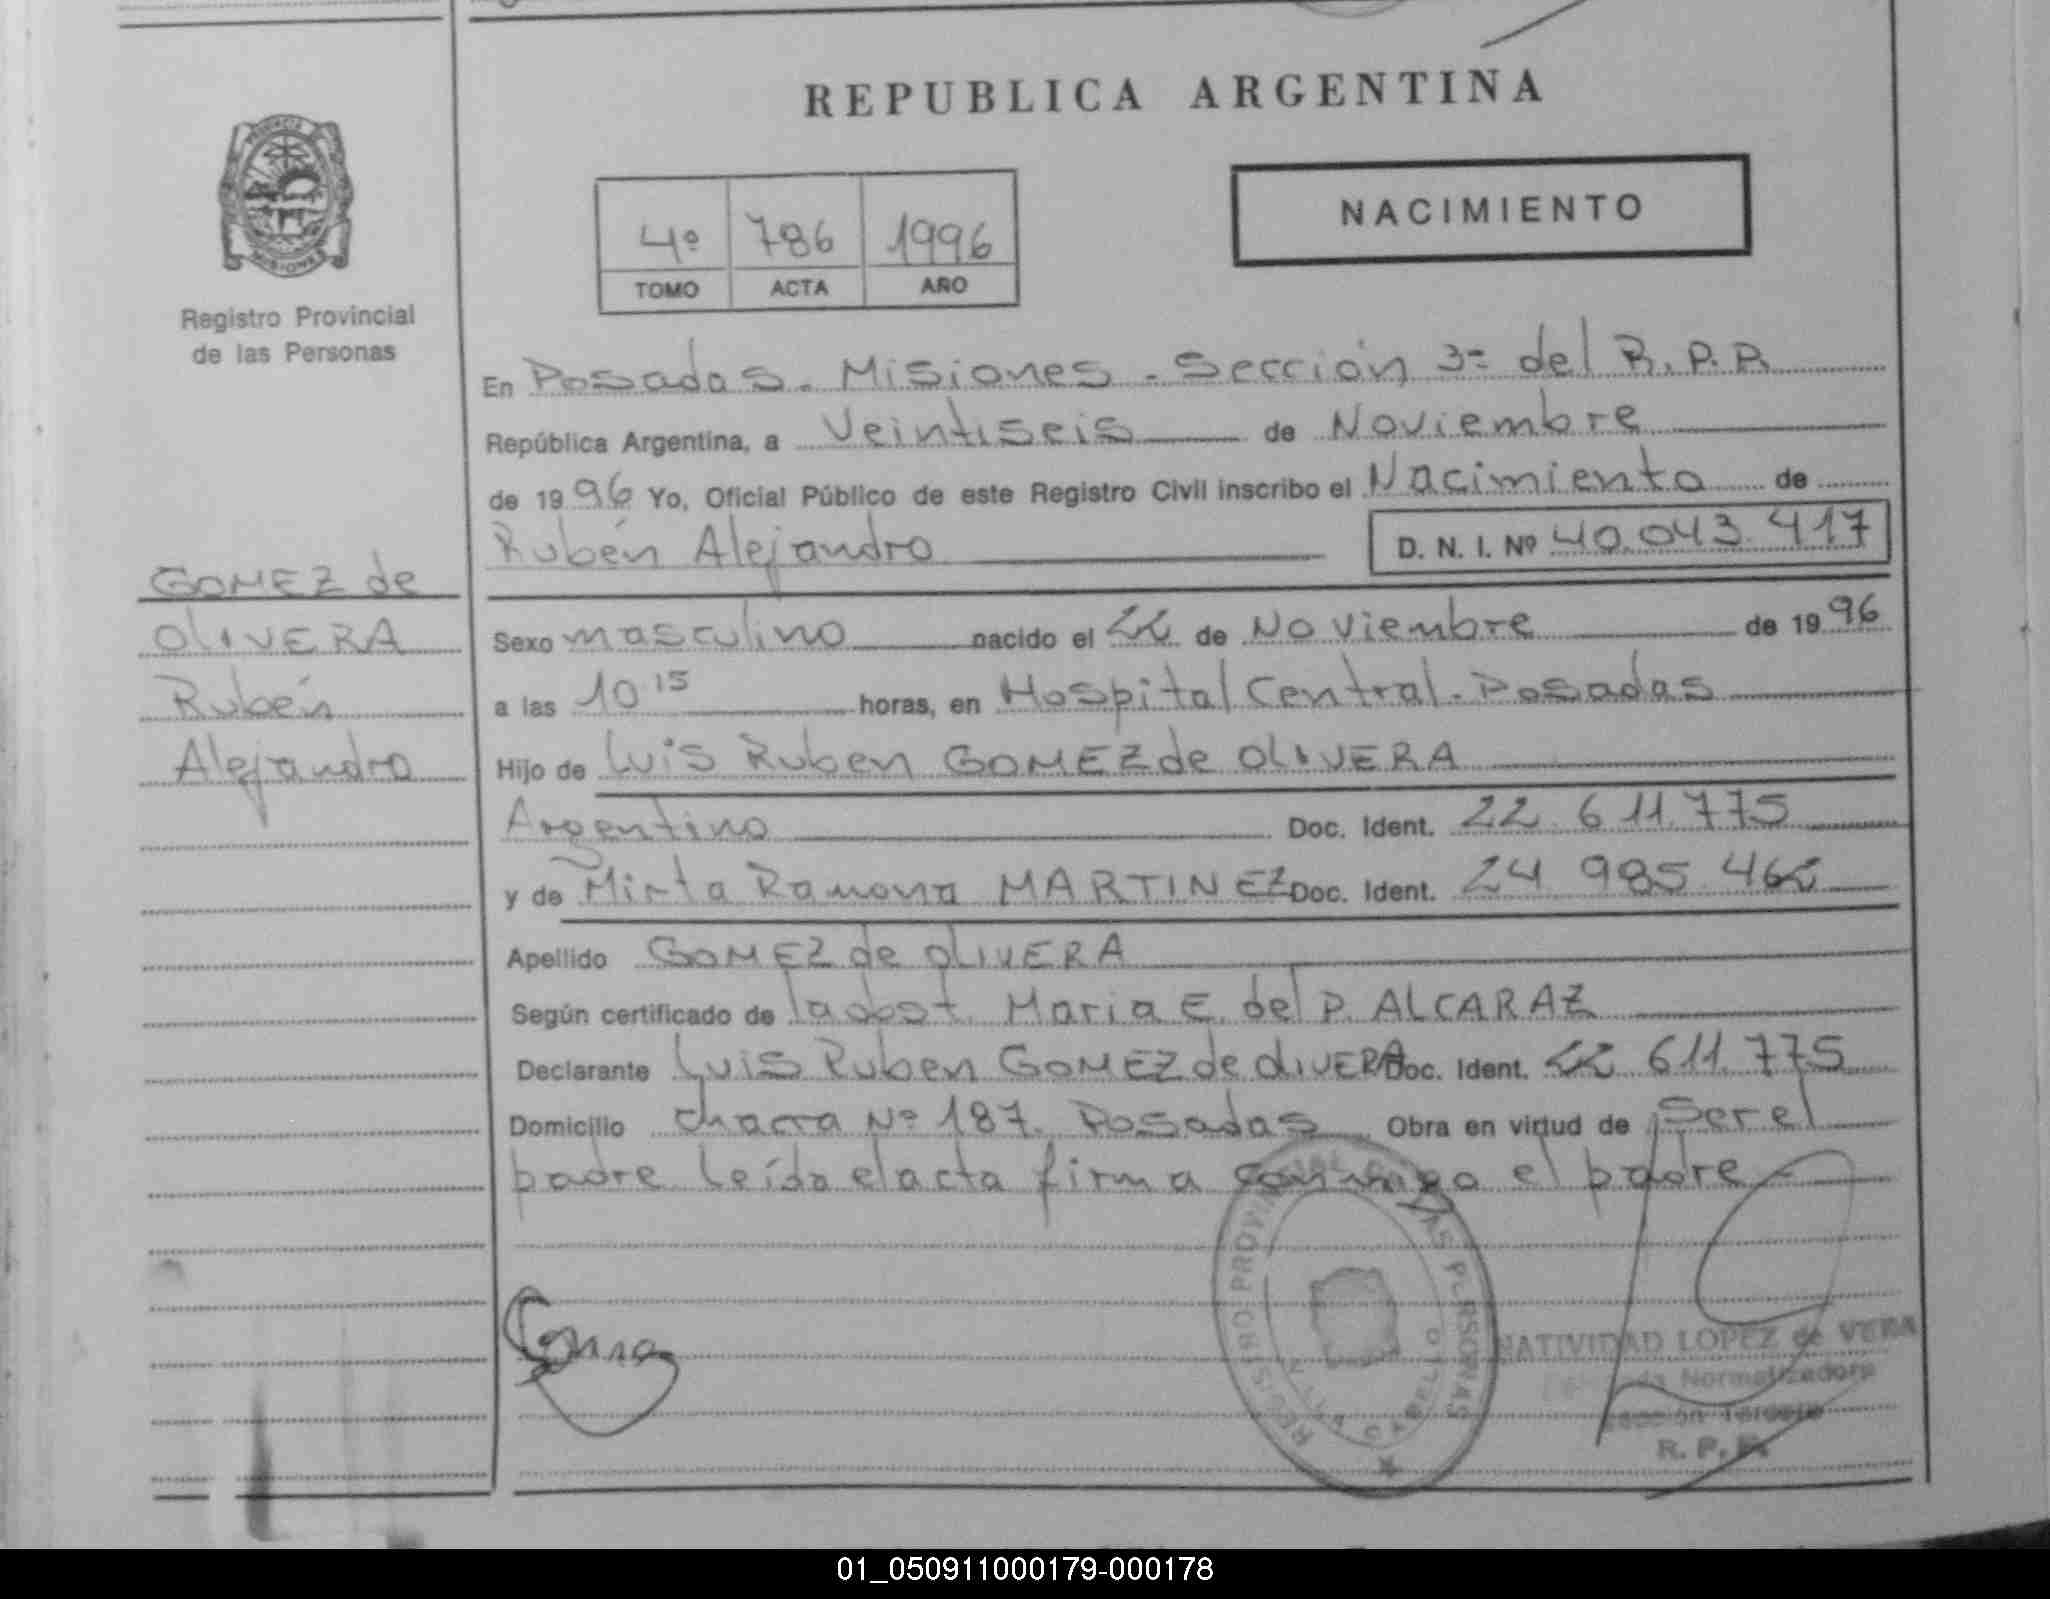 REPUBLICA ARGENTINA
PROVINCIA
MISIONES
Registro Provincial
de las Personas
NACIMIENTO
4º 786 1996
TOMO ACTA AÑO
En Posadas. Misiones. Sección 3ª del R.P.P.
República Argentina, a Veintiseis de Noviembre
de 1996 Yo, Oficial Público de este Registro Civil inscribo el Nacimiento de
Rubén Alejandro D. N. I. Nº 40.043.417
GOMEZ de
OLIVERA
Rubén
Alejandro
Sexo masculino nacido el 22 de Noviembre de 1996
a las 10 15 horas, en Hospital Central. Posadas
Hijo de Luis Ruben GOMEZ de OLIVERA
Argentino Doc. Ident. 22.611.775
y de Mirta Ramona MARTINEZ Doc. Ident. 24 985 462
Apellido GOMEZ de OLIVERA
Según certificado de la obst. Maria E. del P. ALCARAZ
Declarante Luis Ruben GOMEZ de OLIVERA Doc. Ident. 22 611.775
Domicilio chacra Nº 187. Posadas Obra en virtud de ser el
padre. Leída el acta firma conmigo el padre
REGISTRO PROVINCIAL DE LAS PERSONAS
NATIVIDAD LOPEZ de VERA
Normalizadora
Sección Tercera
R. P. P.
01_050911000179-000178